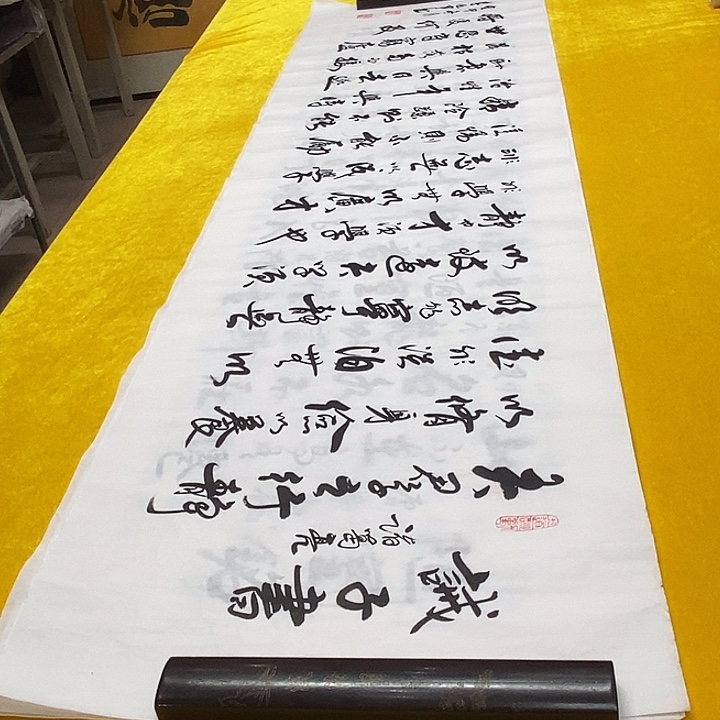 誡子書
諸葛亮
夫君子之行靜
以脩身儉以養
德非澹泊無以
明志非寧靜無
以致遠夫學須
靜也才須學也
非學無以廣才
非志無以成學
淫慢則不能勵
精險躁則不能
治性年與時
馳意與日去遂
成枯落多不接
世悲守窮廬
將復何及